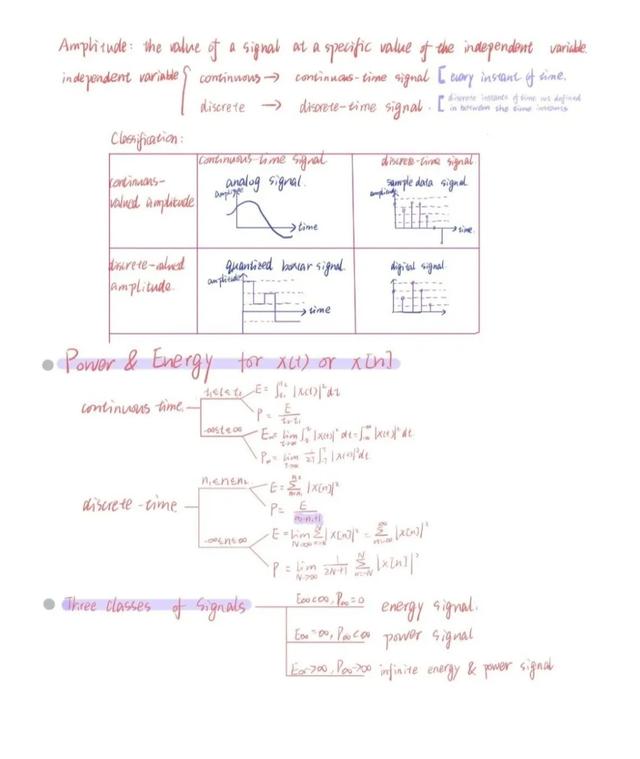 Amplitude: the value of a signal at a specific value of the independent variable
independent variable { continuous → continuous-time signal [every instant of time.
discrete → discrete-time signal. [discrete instants of time
in between the time instants
Classification:
continuous-time signal discrete-time signal
continuous-valued amplitude
analog signal.
amplitude
time
sample data signal
amplitude
time
discrete-valued amplitude
quantized boxcar signal.
amplitude
time
digital signal
Power & Energy for x(t) or x[n]
continuous time
t₁≤t≤t₂ E = ∫ |x(t)|² dt
P = E / t₂-t₁
-∞≤t≤∞ E∞ = lim T→∞ ∫ |x(t)|² dt = ∫ |x(t)|² dt
P∞ = lim T→∞ 1/2T ∫ |x(t)|² dt
discrete-time
n₁≤n≤n₂ E = Σ |x[n]|²
P = E / n₂-n₁+1
-∞≤n≤∞ E = lim N→∞ Σ |x[n]|² = Σ |x[n]|²
P = lim N→∞ 1/2N+1 Σ n=-N N |x[n]|²
Three classes of signals
E∞<∞, P∞=0 energy signal.
E∞=∞, P∞<∞ power signal
E∞→∞, P∞→∞ infinite energy & power signal